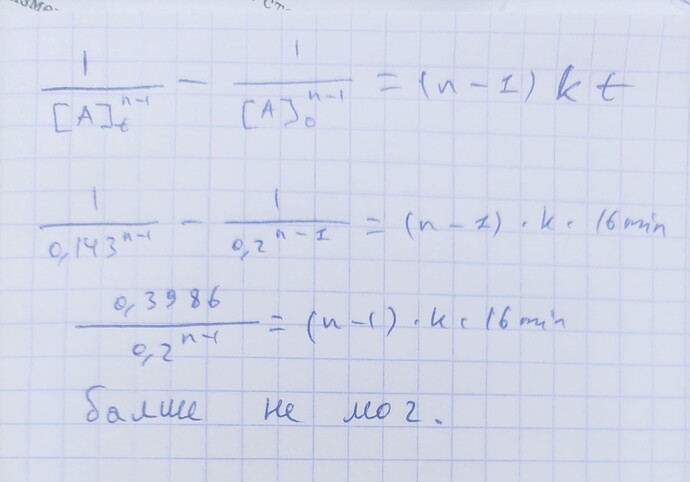 1/[A]_t^{n-1} - 1/[A]_0^{n-1} = (n-1) k t
1/0,143^{n-1} - 1/0,2^{n-1} = (n-1) · k · 16 min
0,3986/0,2^{n-1} = (n-1) · k · 16 min
балше не мог.